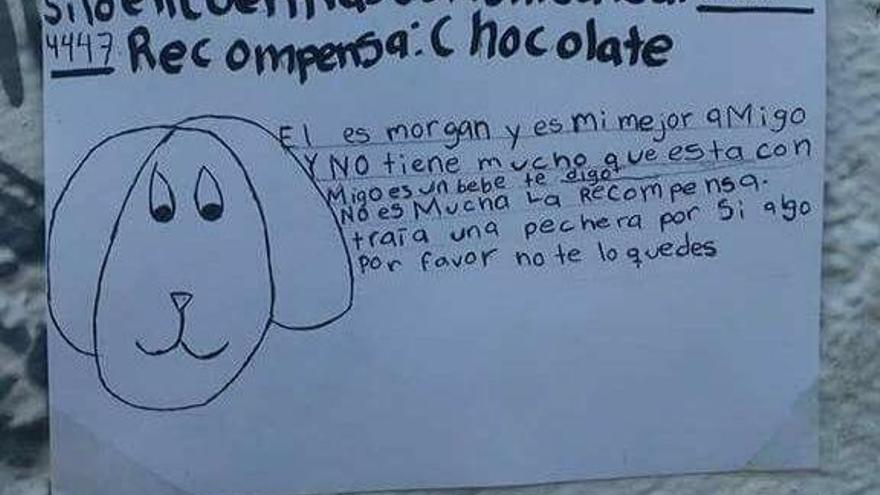 Si lo encuentras
4447 Recompensa: Chocolate
El es morgan y es mi mejor aMigo
Y NO tiene mucho que esta con
Migo es un bebe te digo
NO es Mucha La Recompensa.
traía una pechera por si algo
por favor no te lo quedes